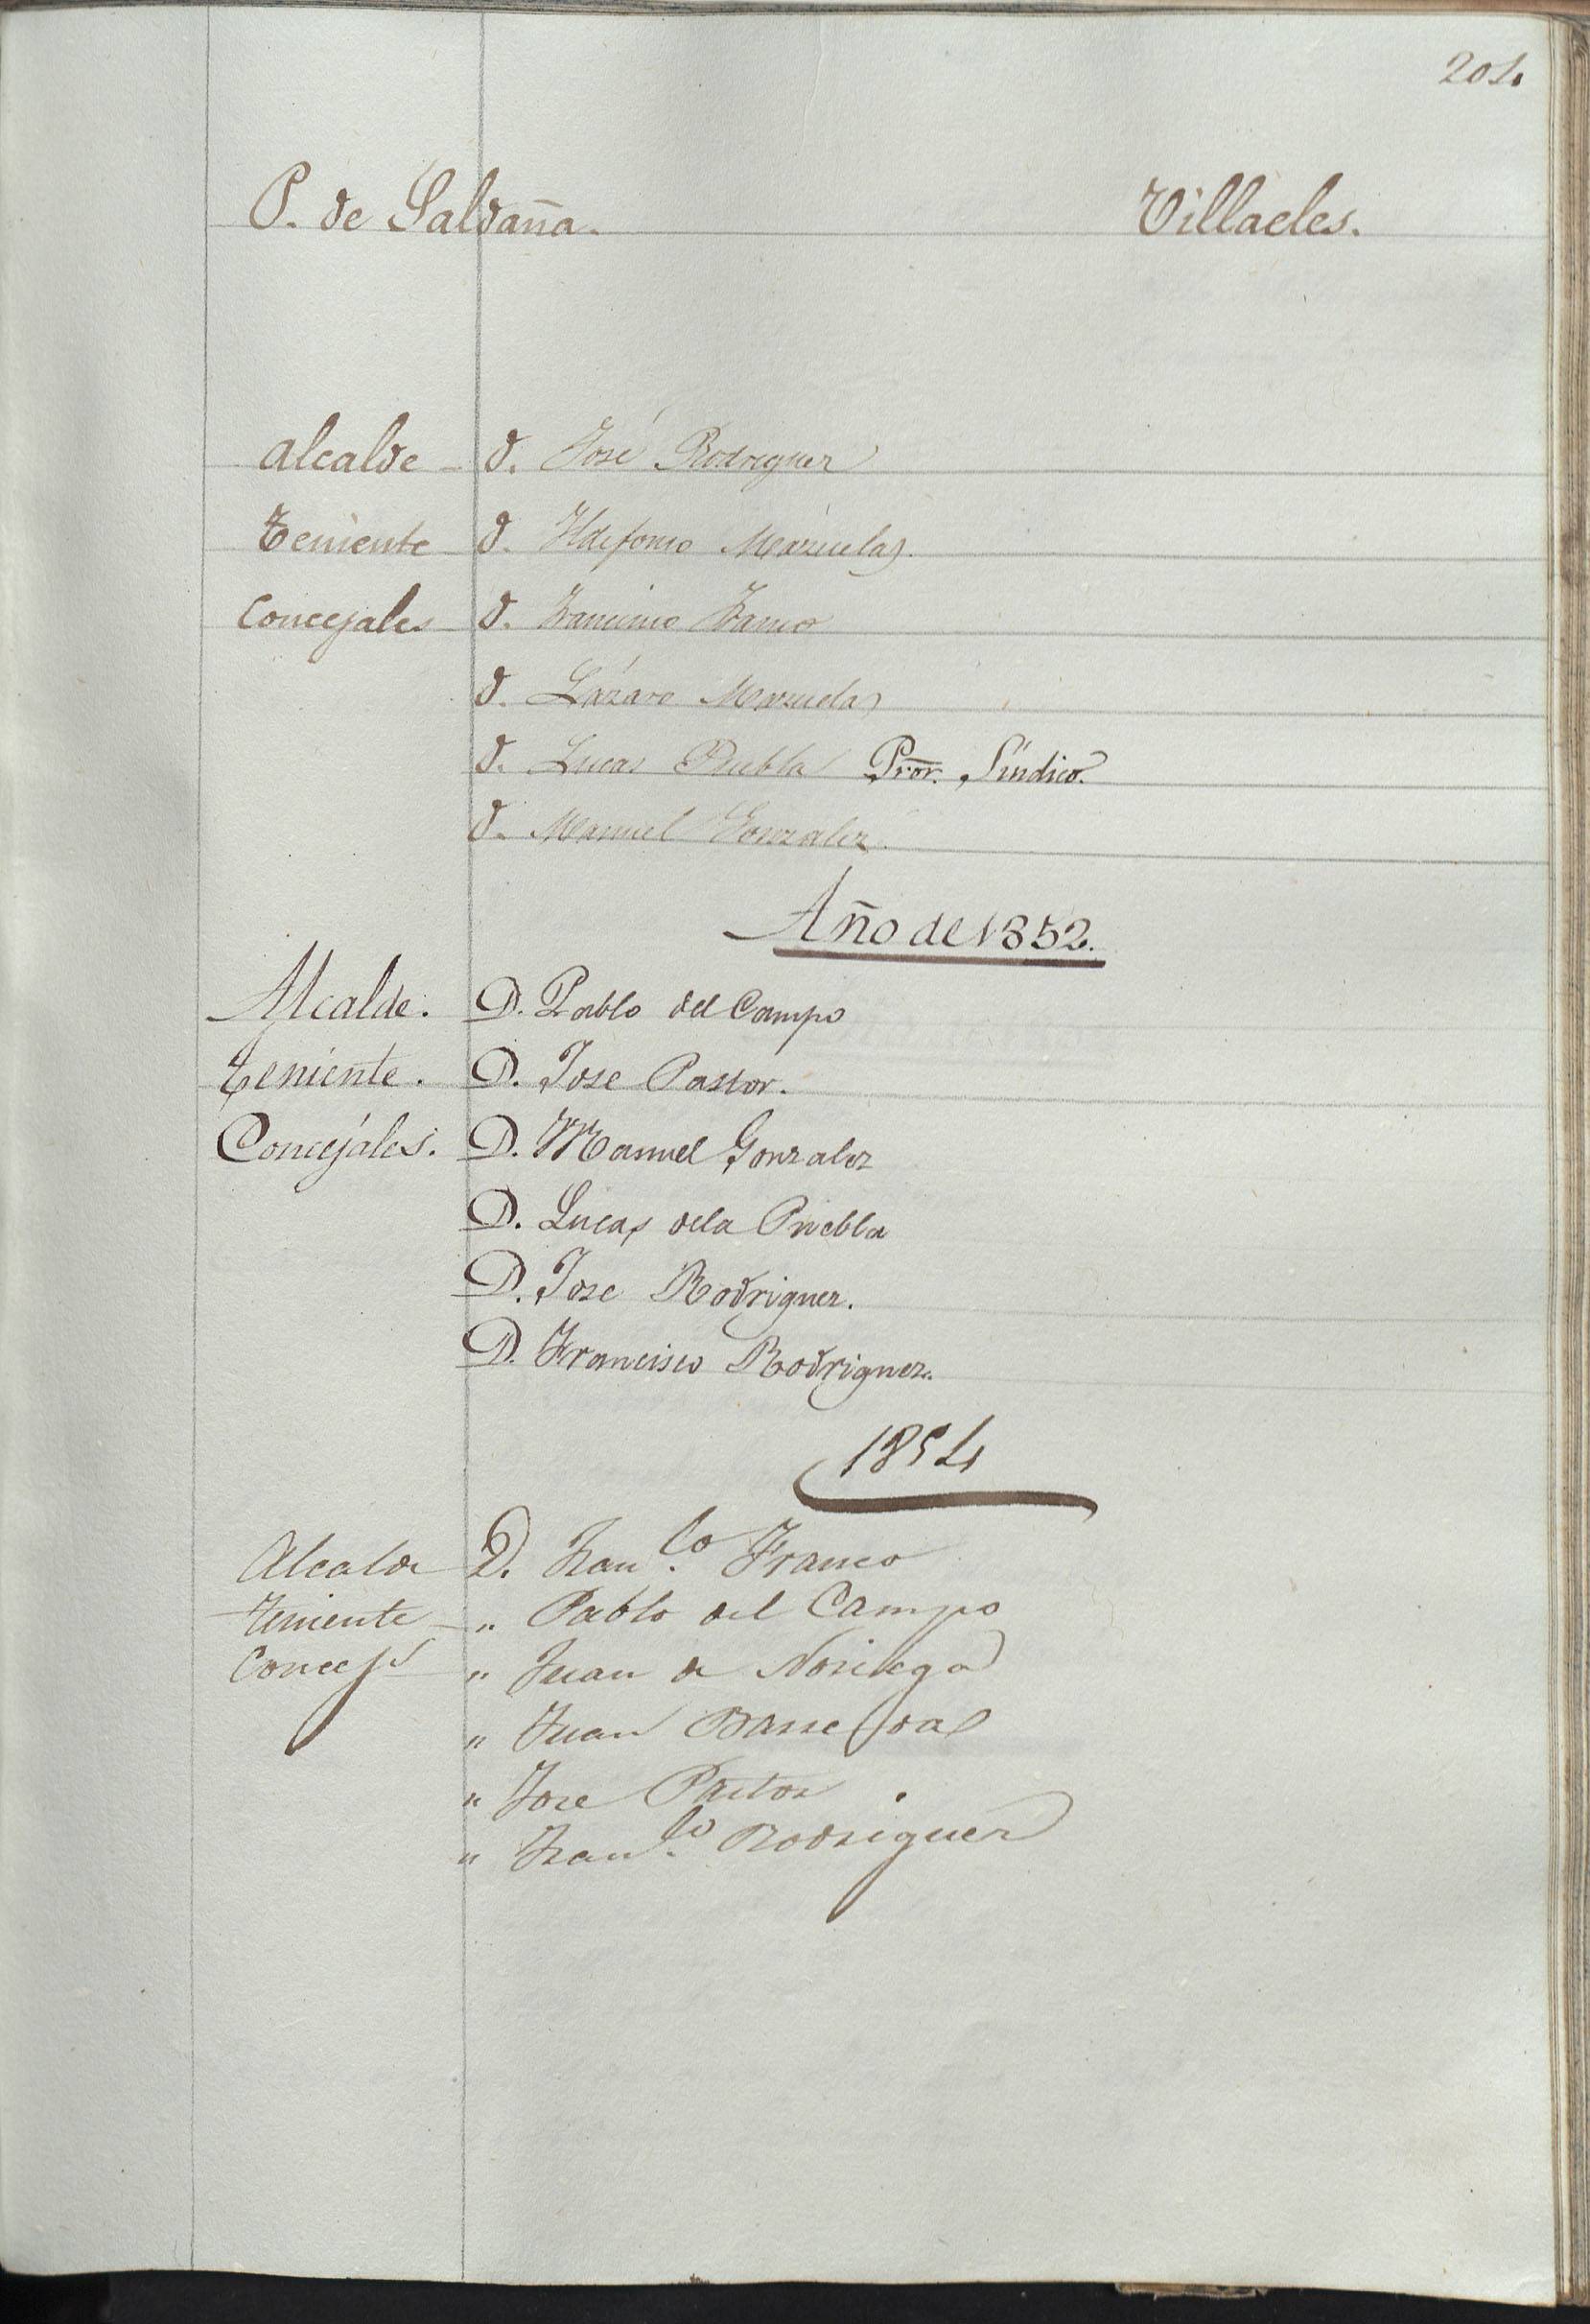 201.
P. de Saldaña. Villaeles.
Alcalde D. José Rodriguez
Teniente D. Ildefonso Marzuelas.
Concejales D. Francisco Franco
D. Lázaro Marzuelas
D. Lucas Puebla Pror. Síndico.
D. Manuel Gonzalez.
Año de 1852.
Alcalde. D. Pablo del Campo
Teniente. D. Jose Pastor.
Concejáles. D. Manuel Gonzalez
D. Lucas dela Puebla
D. Jose Rodriguez.
D. Francisco Rodriguez.
1854
Alcalde D. Franco. Franco
Teniente " Pablo del Campo
Concejs " Juan de Noriega
" Juan
" Jose Pastor
" Franco. Rodriguez